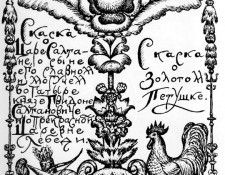 Сказка
о Царе Салта-
не, о сыне
его славном
и могучем
богатыре
князе Гвидоне
Салтановиче
и о прекрасной
Царевне
Лебеди.
Сказка
о
Золотом
Петушке.